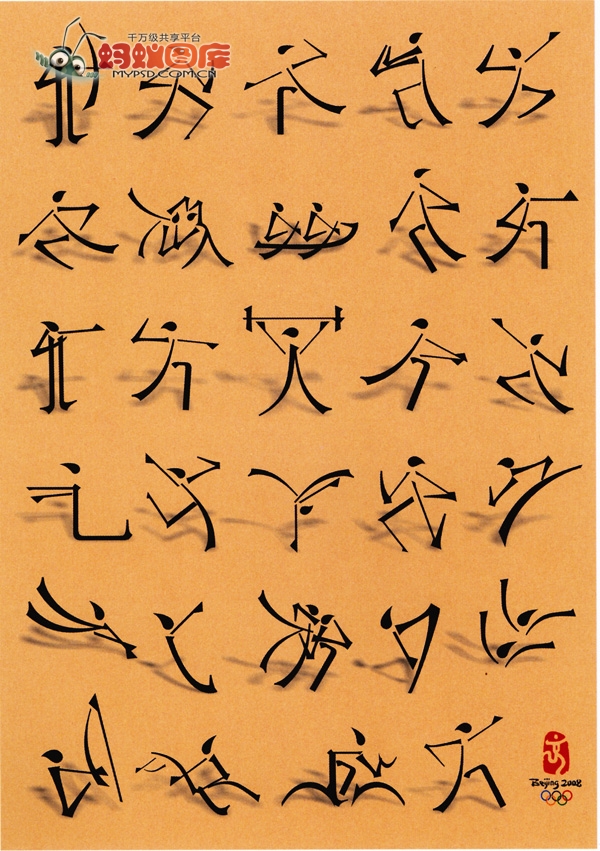 千万级共享平台
蚂蚁图库
MYPSD.COM.CN
Beijing 2008